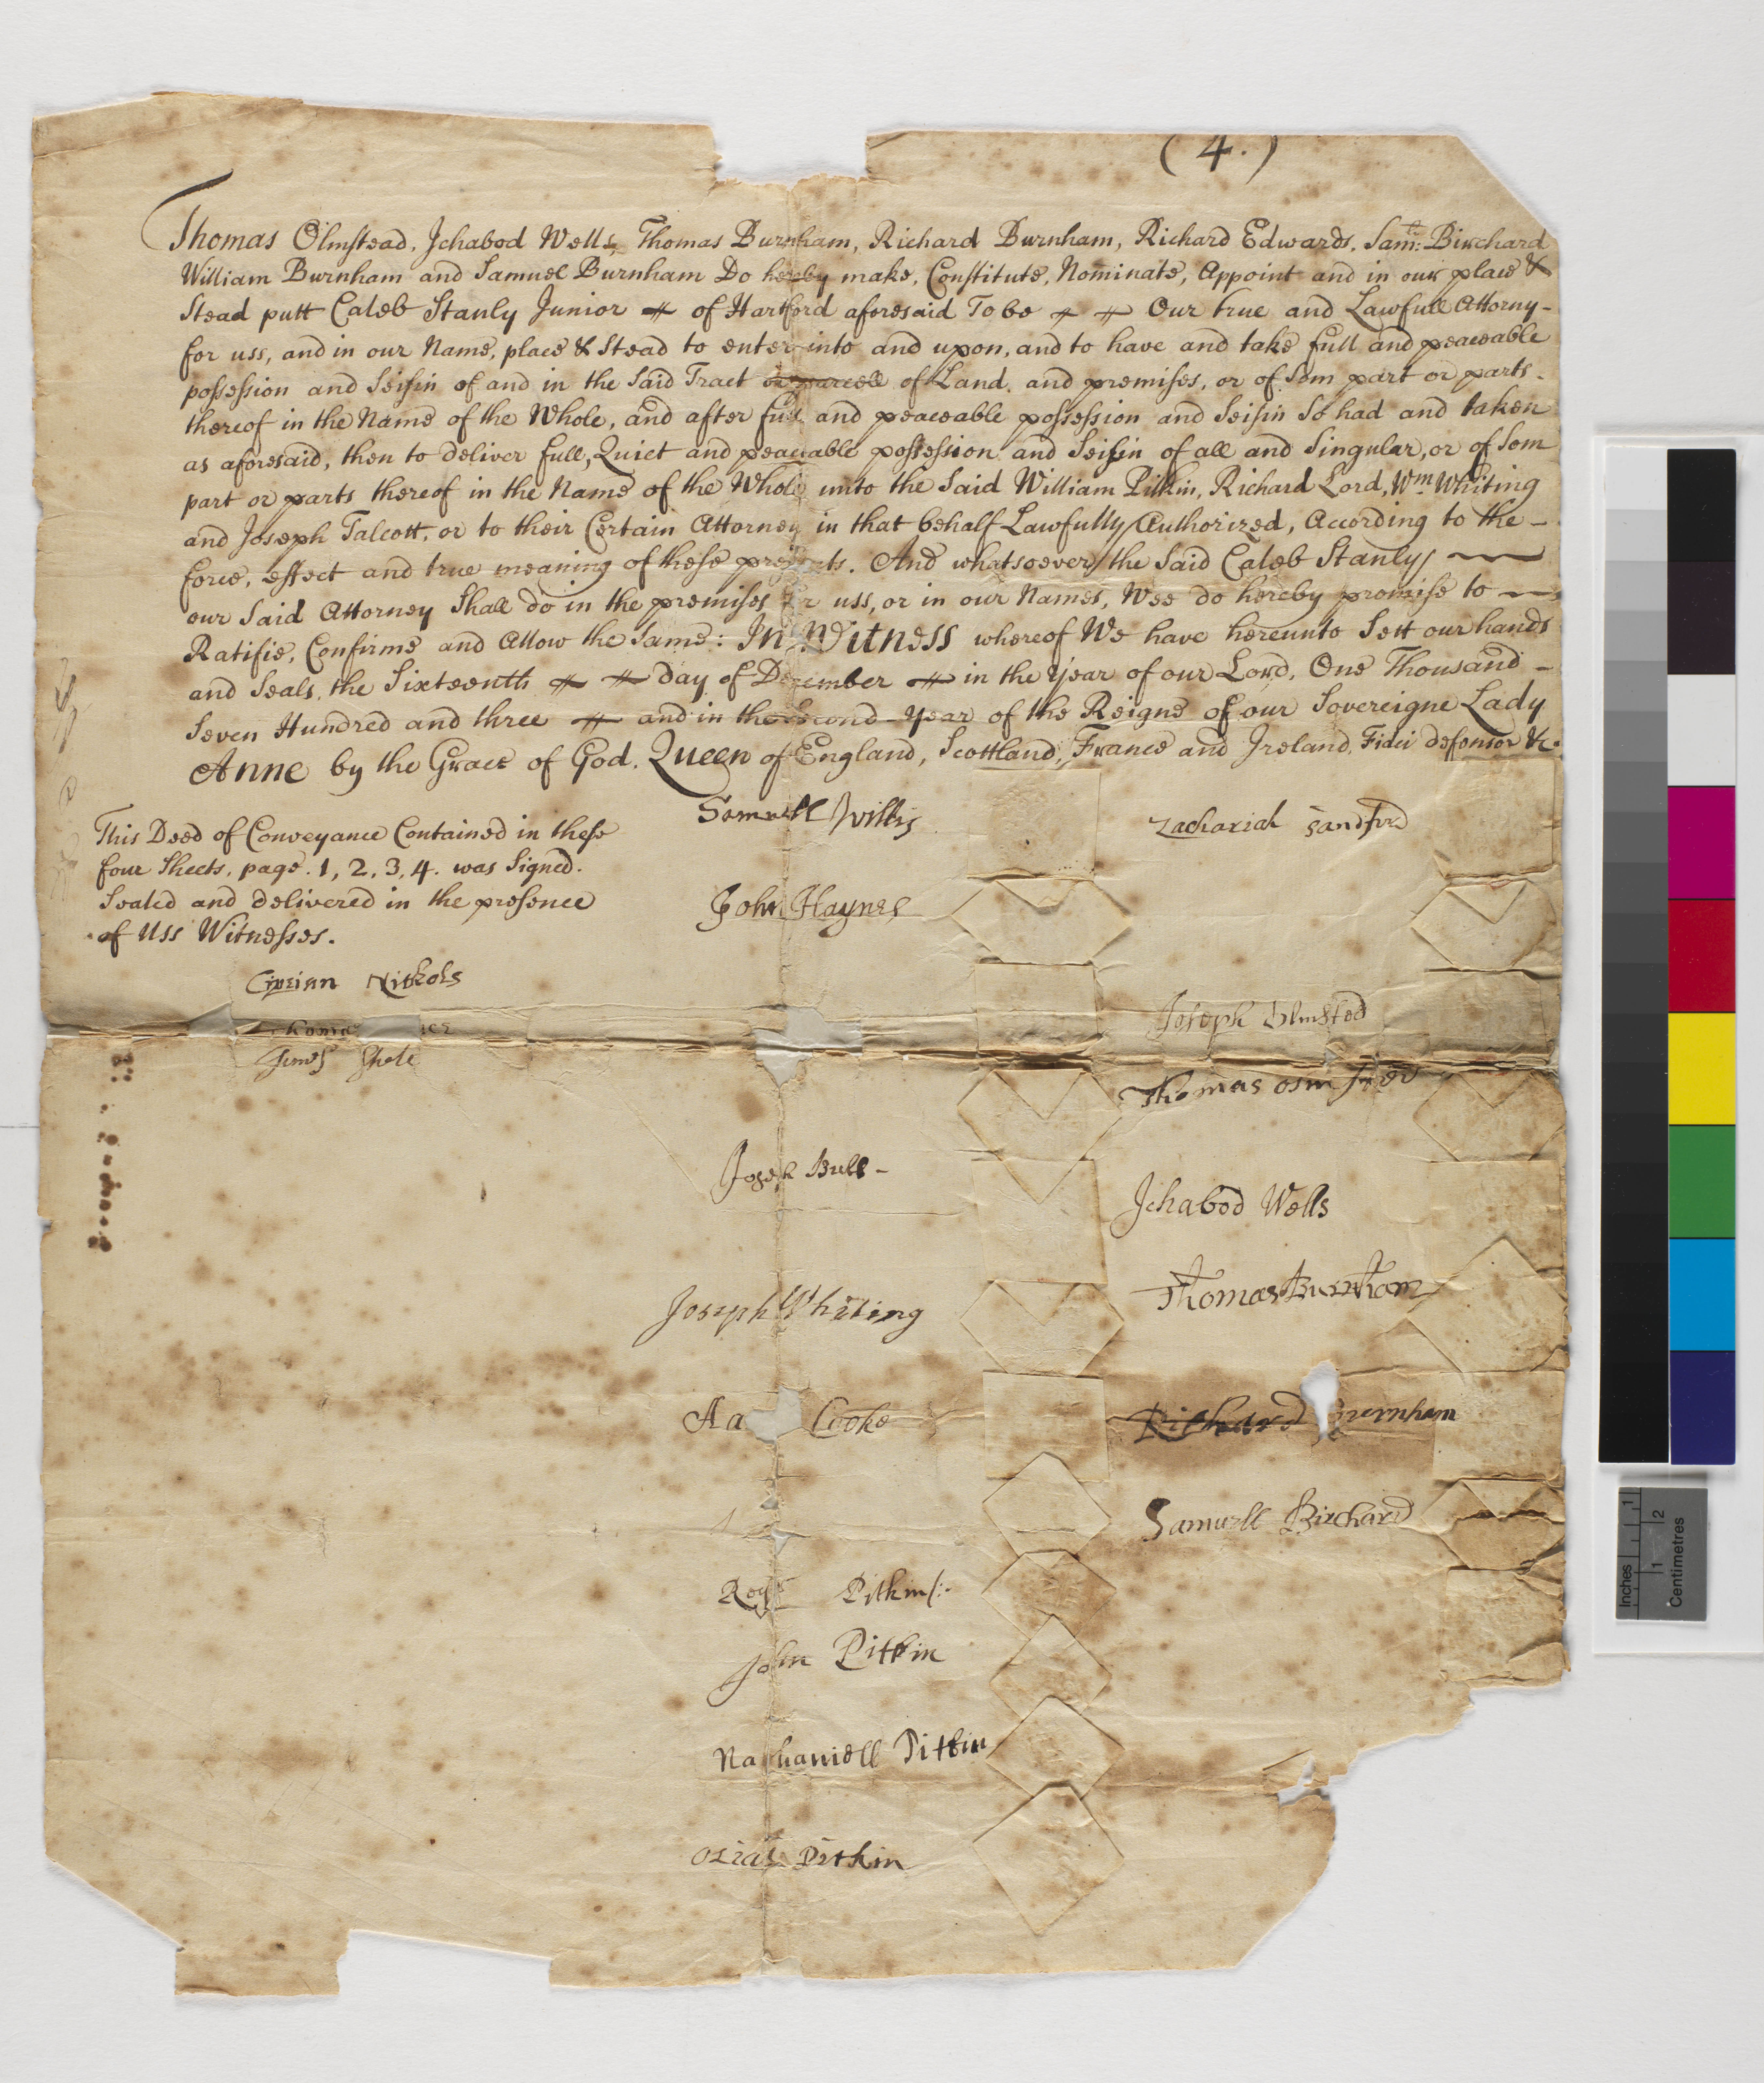 (4.)
Thomas Olmstead, Ichabod Wells, Thomas Burnham, Richard Burnham, Richard Edwards, Samll: Birchard
William Burnham and Samuel Burnham Do hereby make, Constitute, Nominate, Appoint and in our place &
Stead putt Caleb Stanly Junior of Hartford aforesaid To be Our true and Lawfull Attorny-
for uss, and in our Name, place & Stead to enter into and upon, and to have and take full and peaceable
possession and Seisin of and in the Said Tract or parcell of Land, and premises, or of Som part or parts-
thereof in the Name of the Whole, and after full and peaceable possession and Seisin So had and taken
as aforesaid, then to deliver full, Quiet and peaceable possession and Seisin of all and Singular, or of Som
part or parts thereof in the Name of the Whole unto the Said William Pitkin, Richard Lord, Wm. Whiting
and Joseph Talcott, or to their Certain Attorney in that behalf Lawfully Authorized, According to the -
force, effect and true meaning of these presents. And whatsoever the Said Caleb Stanly
our Said Attorney Shall do in the premises for uss, or in our Names, Wee do hereby promise to
Ratifie, Confirme and Allow the Same: In Witness whereof We have hereunto Sett our hands
and Seals, the Sixteenth day of December in the Year of our Lord, One Thousand -
Seven Hundred and three and in the Second Year of the Reigne of our Sovereigne Lady
Anne by the Grace of God, Queen of England, Scottland, France and Ireland, Fidei defensor &c.
This Deed of Conveyance Contained in these
four Sheets, page. 1, 2, 3, 4. was Signed.
Sealed and delivered in the presence
of Uss Witnesses.
Ciprian Nickols
James
Samuell Willis
John Haynes
Joseph Bull -
Joseph Whiting
Aa Cooke
Roger Pitkin
John Pitkin
Nathaniell Pitkin
Ozias Pitkin
Zachariah Sandford
Joseph Olmsted
Thomas
Ichabod Wells
Thomas Burnham
Richard Burnham
Samuell Birchard
Inches 1
Centimetres 1 2